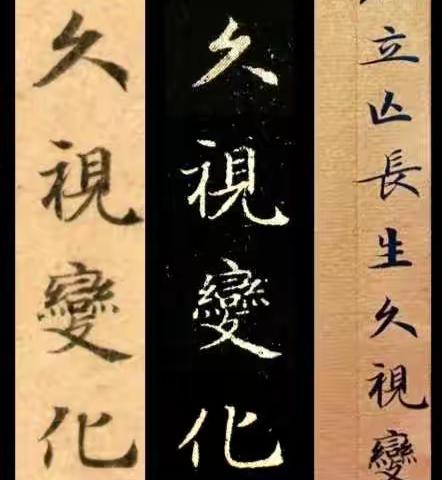 久視變化
久視變化
立亾長生久視變